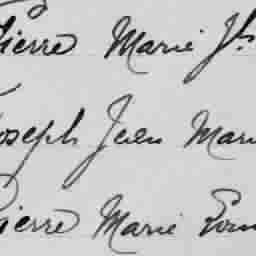 Pierre Marie Jh
Joseph Jules Marie
Pierre Marie